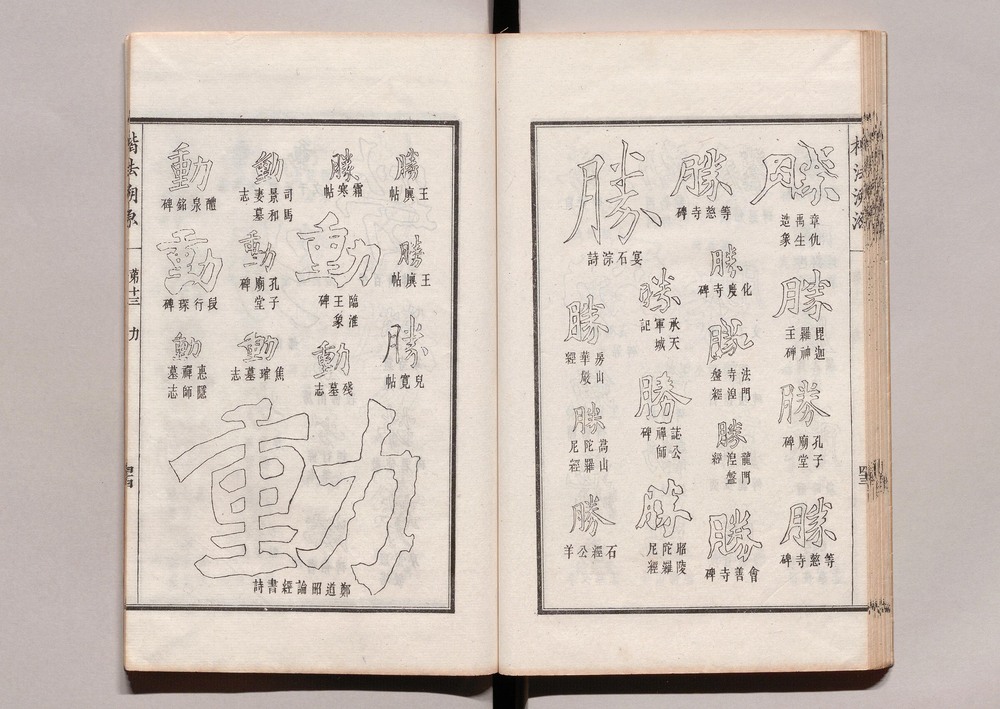 勝
章仇禹生造象
勝
毘迦羅神碑主
勝
孔子廟堂碑
勝
等慈寺碑
勝
等慈寺碑
勝
化度寺碑
勝
法門寺湼盤經
勝
龍門湼盤經
勝
會善寺碑
勝
宴石淙詩
勝
承天軍城記
勝
誌公禪師碑
勝
昭陵陀羅尼經
勝
房山華嚴經
勝
嵩山陀羅尼經
勝
石經公羊
勝
王廙帖
勝
王廙帖
勝
兒寛帖
勝
霜寒帖
動
臨淮王象碑
動
殘墓志
動
司馬景和妻墓志
動
孔子廟堂碑
動
焦璀墓志
動
醴泉銘碑
動
段行琛碑
動
惠隱禪師墓志
動
鄭道昭論經書詩
楷法溯源
第十三 力